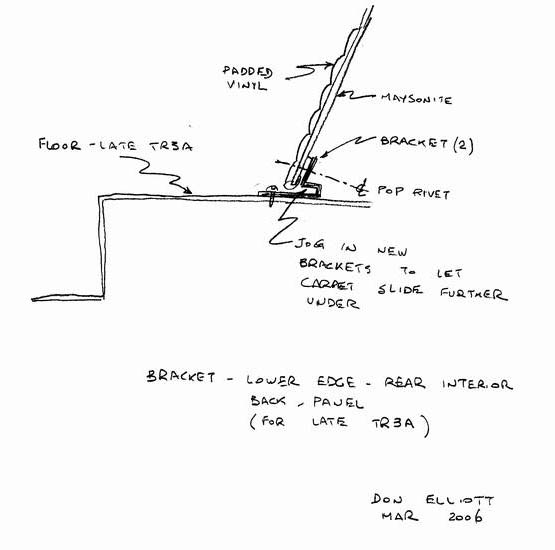 PADDED
VINYL
MAYSONITE
FLOOR - LATE TR3A
BRACKET (2)
℄ POP RIVET
JOG IN NEW
BRACKETS TO LET
CARPET SLIDE FURTHER
UNDER
BRACKET - LOWER EDGE - REAR INTERIOR
BACK - PANEL
(FOR LATE TR3A)
DON ELLIOTT
MAR 2006